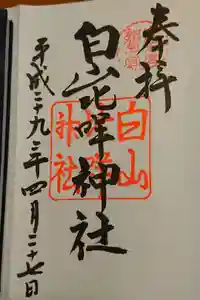 奉拝
白山比咩神社
平成二十九年四月二十七日
白山
比咩
神社